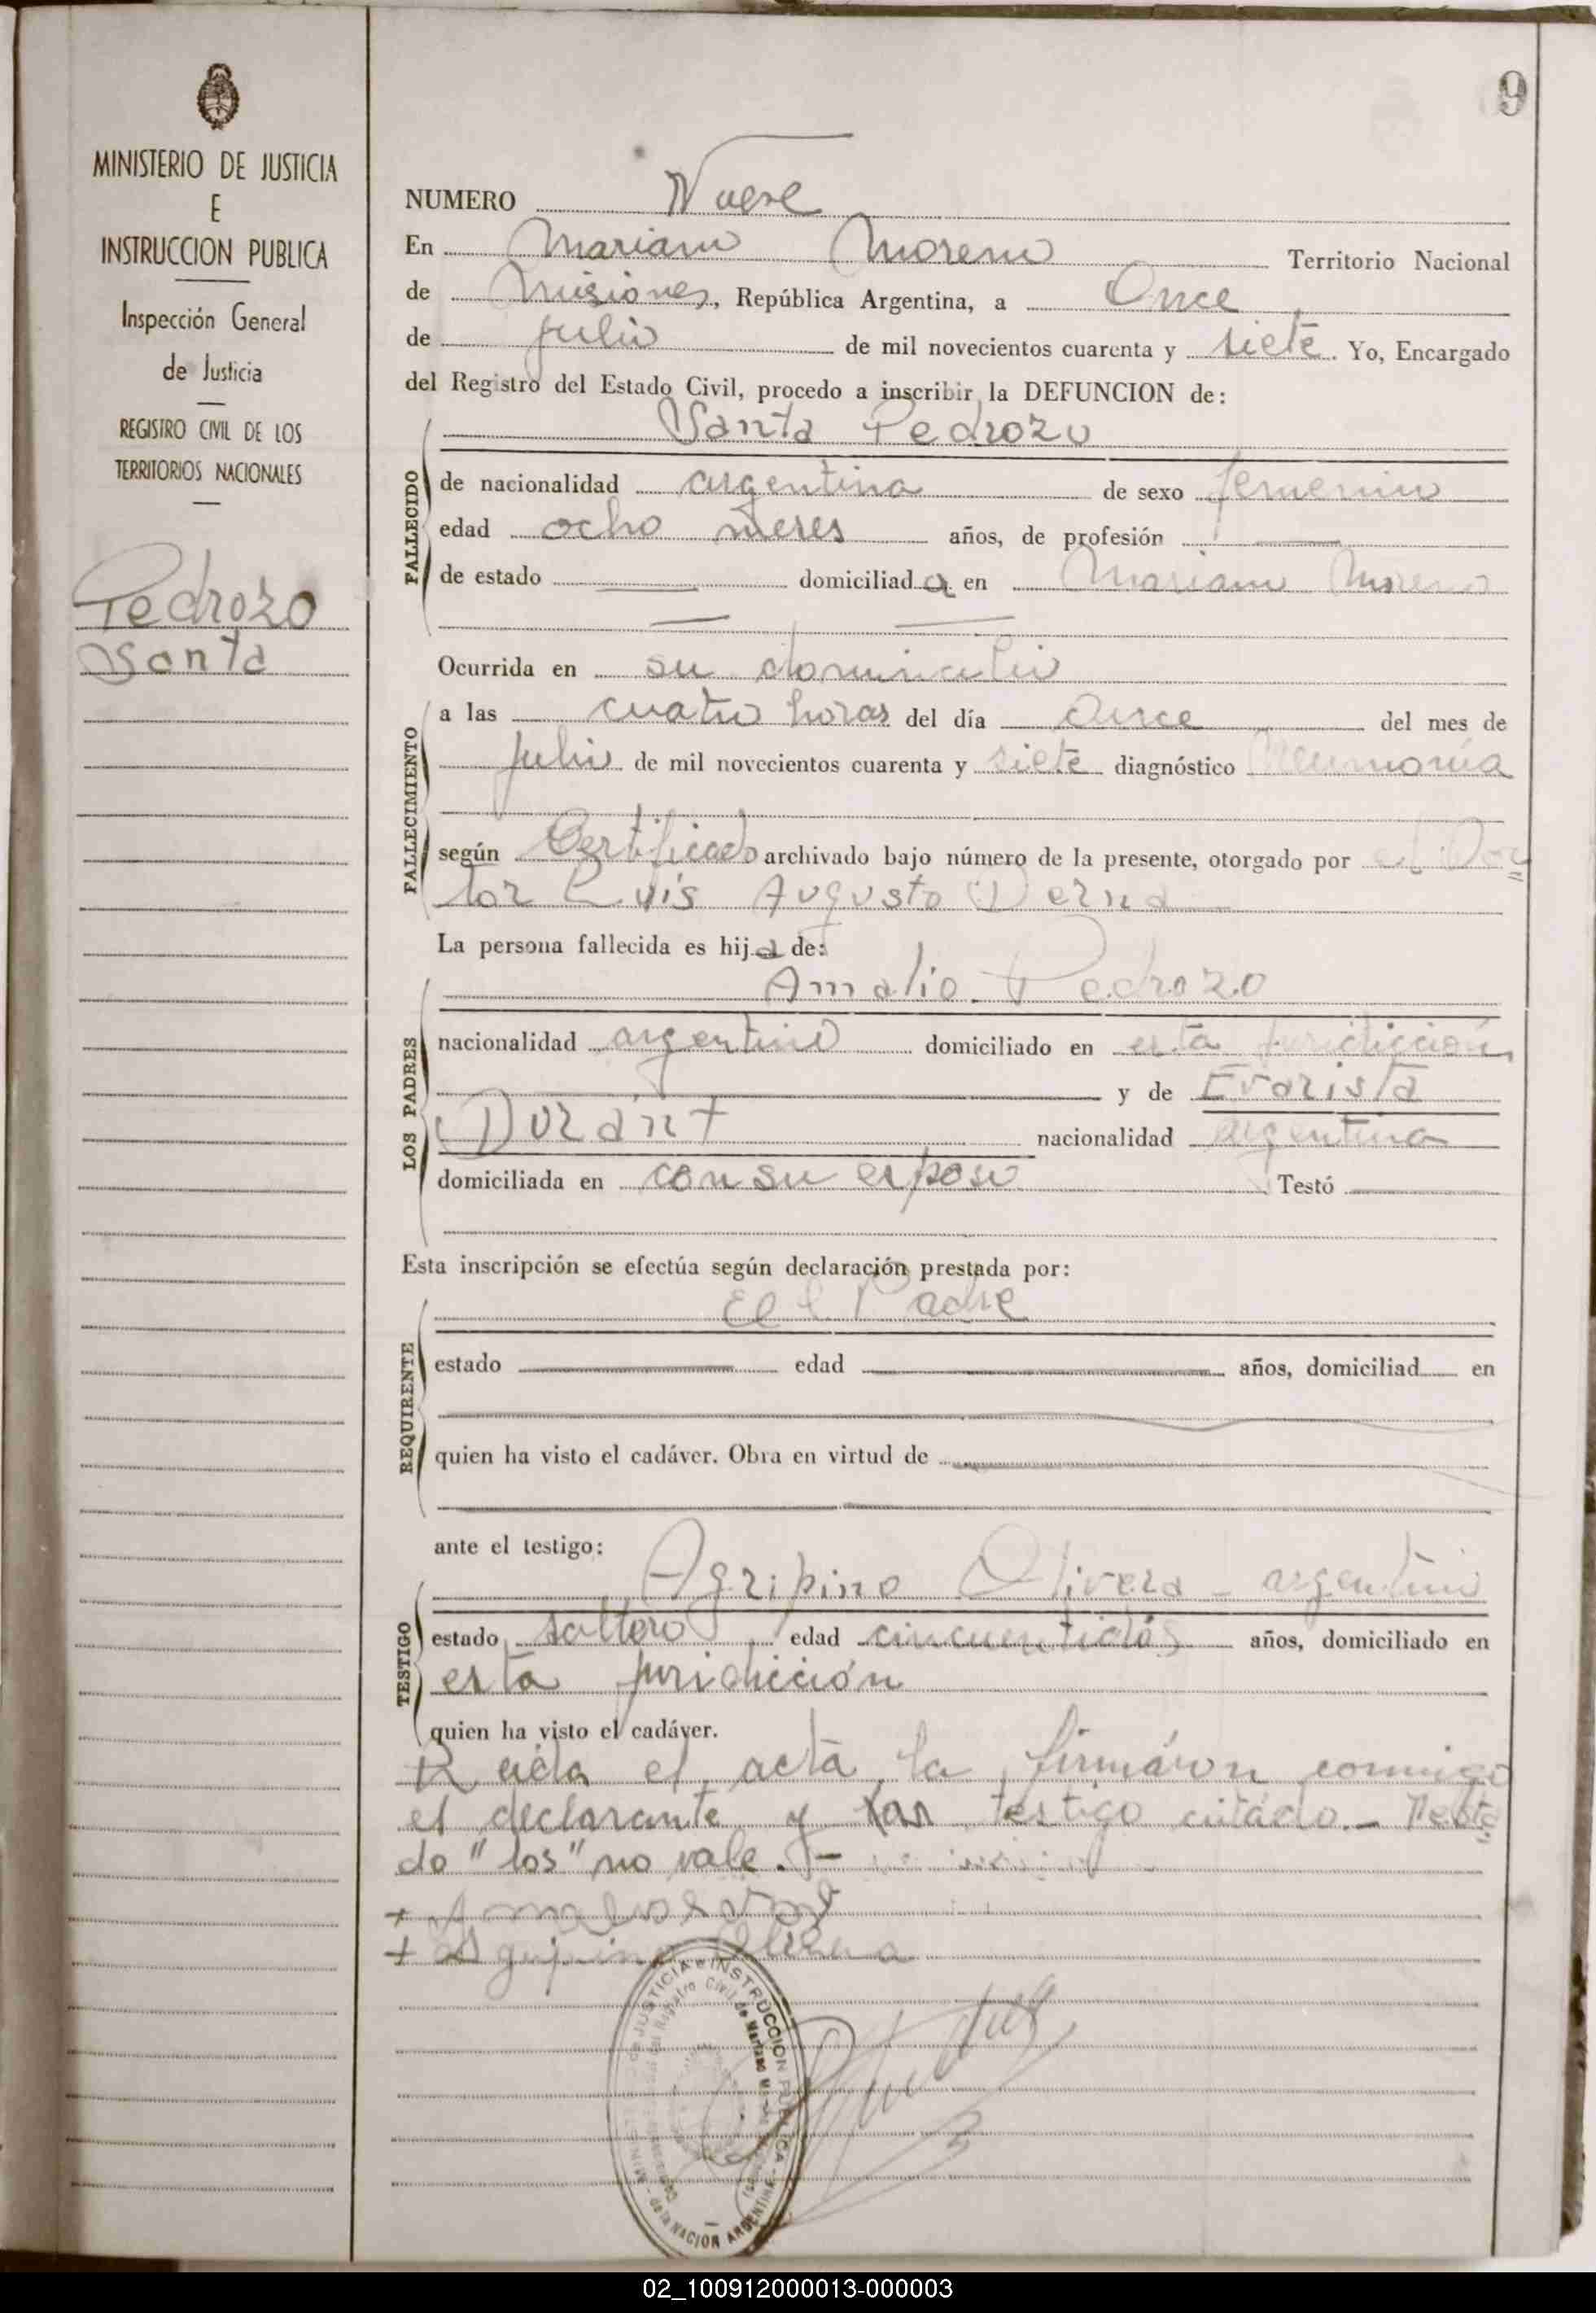 9
MINISTERIO DE JUSTICIA
E
INSTRUCCION PUBLICA
Inspección General
de Justicia
REGISTRO CIVIL DE LOS
TERRITORIOS NACIONALES
Pedrozo
Santa
NUMERO Nueve
En Mariano Moreno Territorio Nacional
de Misiones, República Argentina, a Once
de julio de mil novecientos cuarenta y siete. Yo, Encargado
del Registro del Estado Civil, procedo a inscribir la DEFUNCION de:
Santa Pedrozo
FALLECIDO
de nacionalidad argentina de sexo femenino
edad ocho meses años, de profesión
de estado domiciliada en Mariano Moreno
Ocurrida en su domicilio
FALLECIMIENTO
a las cuatro horas del día once del mes de
julio de mil novecientos cuarenta y siete diagnóstico Neumonía
según Certificado archivado bajo número de la presente, otorgado por el Doc
tor Luis Augusto Derna
La persona fallecida es hija de:
Amalio Pedrozo
LOS PADRES
nacionalidad argentino domiciliado en esta juridicción
y de Evarista
Durant nacionalidad argentina
domiciliada en con su esposo Testó
Esta inscripción se efectúa según declaración prestada por:
El Padre
REQUIRENTE
estado edad años, domiciliad en
quien ha visto el cadáver. Obra en virtud de
ante el testigo:
Agripino Olivera - argentino
TESTIGO
estado soltero edad cincuentidós años, domiciliado en
esta juridicción
quien ha visto el cadáver.
el acta la firmáron conmigo
el declarante y testigo citádo.- Testa
do "los" no vale.-
+
+ Agripino Olivera
JUSTICIA e INSTRUCCION PUBLICA
de la NACION ARGENTINA
Registro Civil de Mariano
02_100912000013-000003